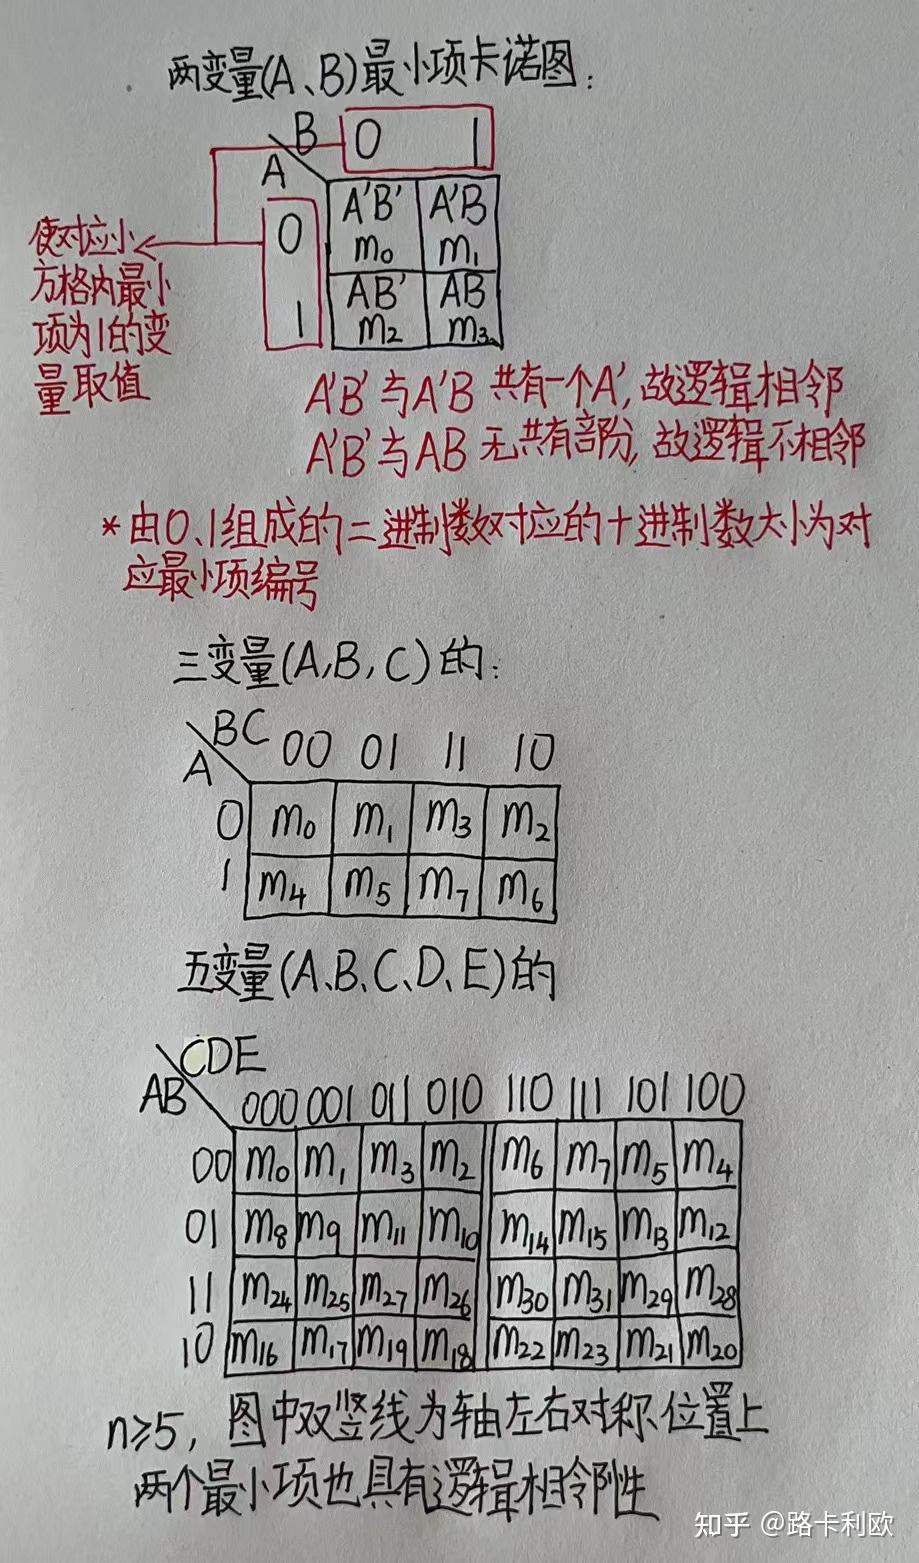 两变量(A、B)最小项卡诺图:
B 0 1
A
0 A'B' A'B
m₀ m₁
1 AB' AB
m₂ m₃
使对应小
方格内最小
项为1的变
量取值
A'B'与A'B 共有一个A', 故逻辑相邻
A'B'与AB 无共有部分, 故逻辑不相邻
*由0、1组成的二进制数对应的十进制数大小为对
应最小项编号
三变量(A,B,C)的:
BC 00 01 11 10
A
0 m₀ m₁ m₃ m₂
1 m₄ m₅ m₇ m₆
五变量(A、B、C、D、E)的
CDE
AB 000 001 011 010 110 111 101 100
00 m₀ m₁ m₃ m₂ m₆ m₇ m₅ m₄
01 m₈ m₉ m₁₁ m₁₀ m₁₄ m₁₅ m₁₃ m₁₂
11 m₂₄ m₂₅ m₂₇ m₂₆ m₃₀ m₃₁ m₂₉ m₂₈
10 m₁₆ m₁₇ m₁₉ m₁₈ m₂₂ m₂₃ m₂₁ m₂₀
n≥5, 图中双竖线为轴左右对称位置上
两个最小项也具有逻辑相邻性
知乎 @路卡利欧